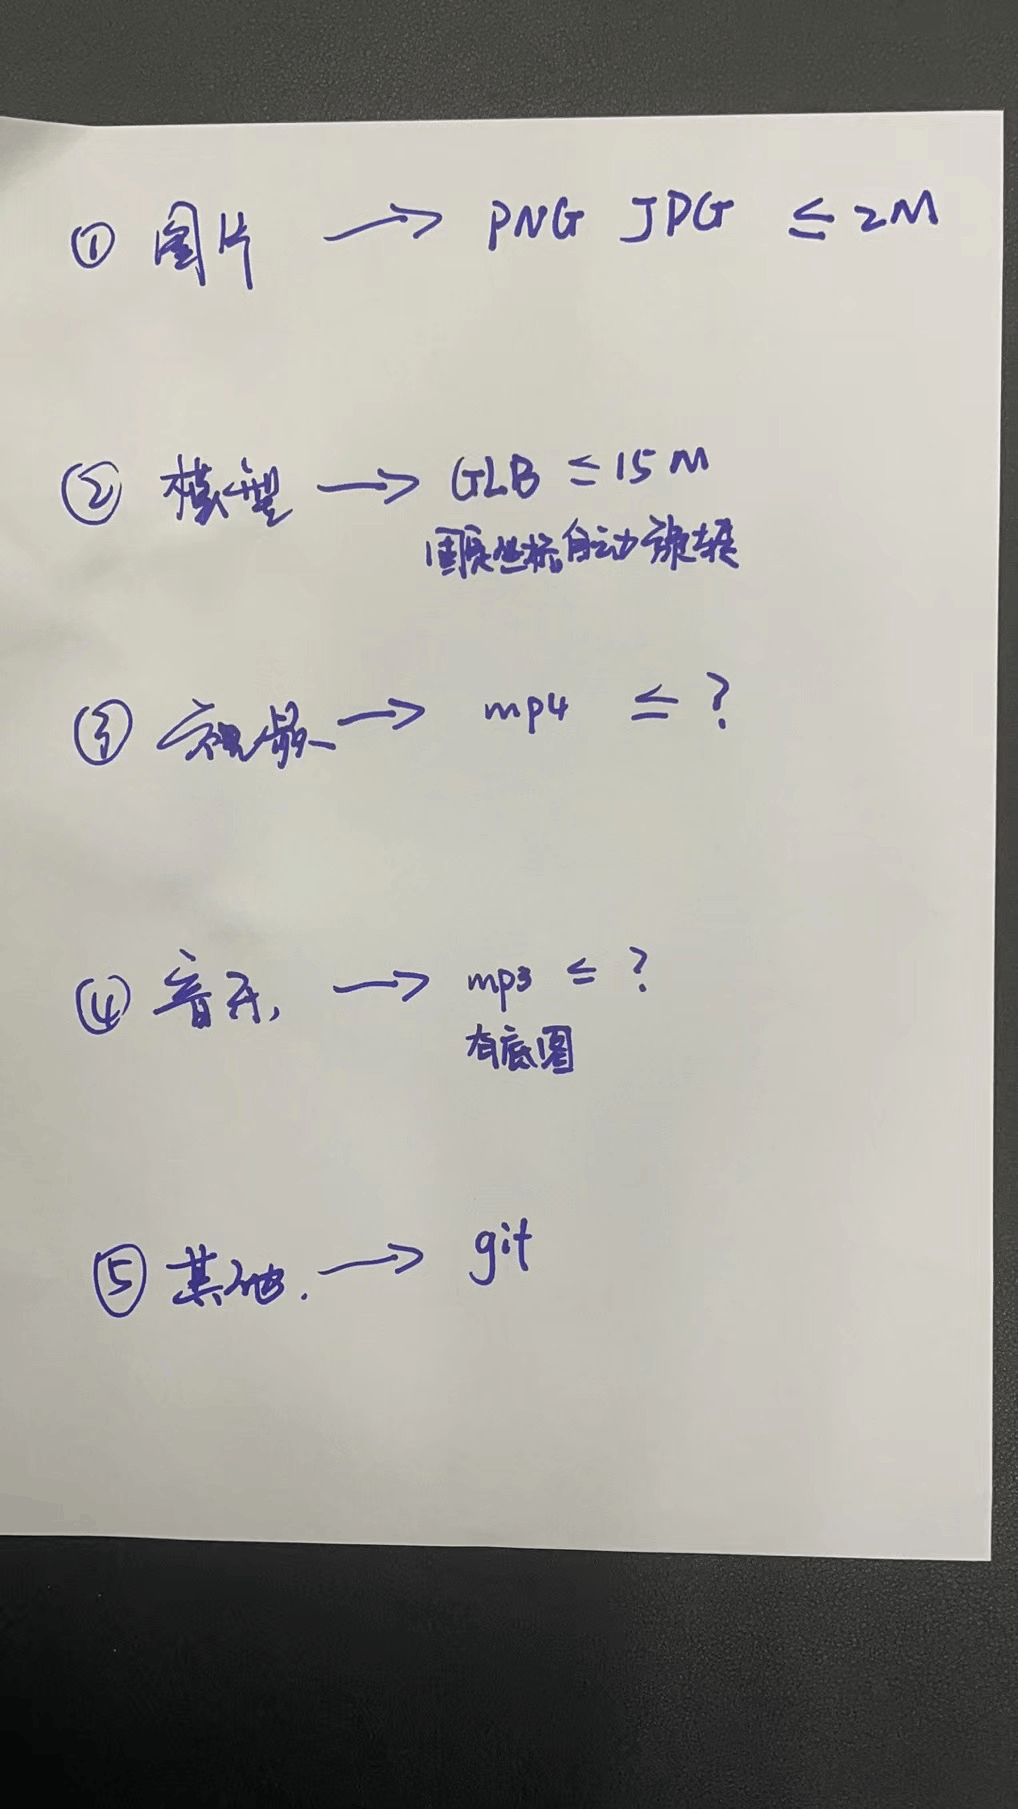 ① 图片 → PNG JPG ≤ 2M
② 模型 → GLB ≤ 15M
固定坐标,自动旋转
③ 视频 → mp4 ≤ ?
④ 音乐, → mp3 ≤ ?
有底图
⑤ 其他. → git